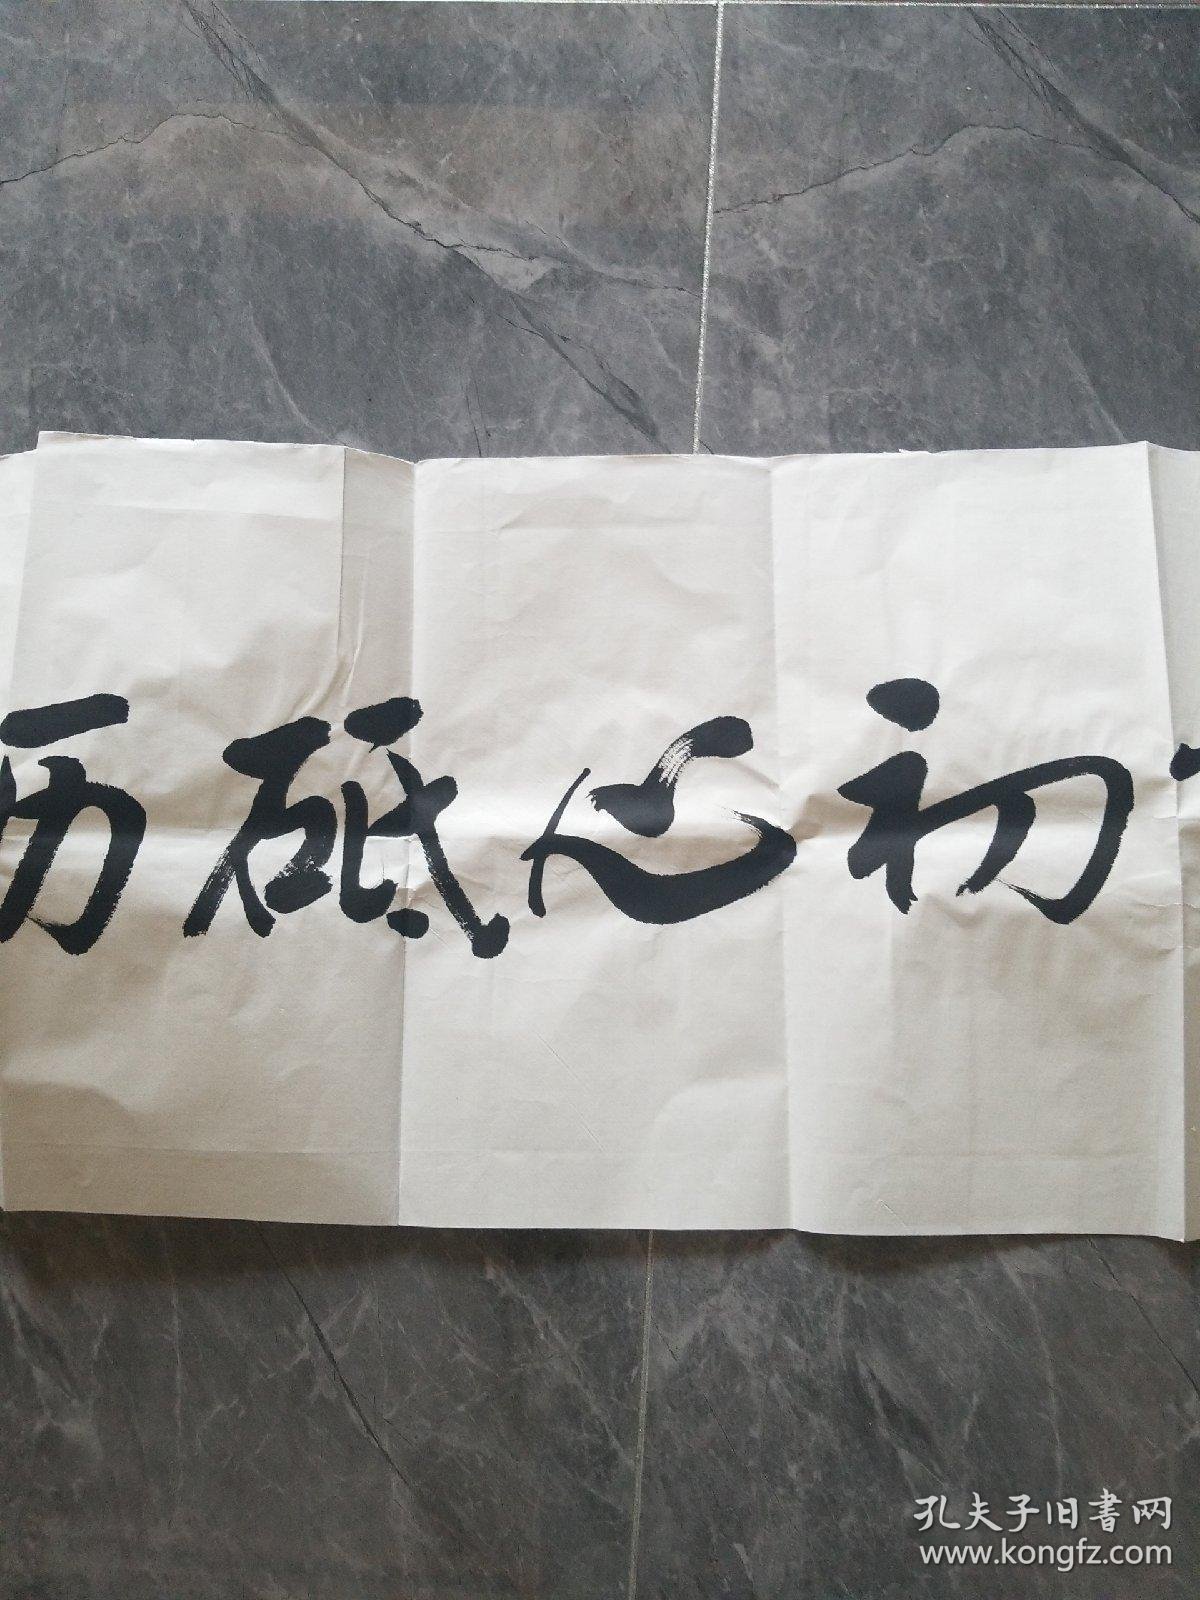 初心砥
孔夫子旧書网
www.kongfz.com